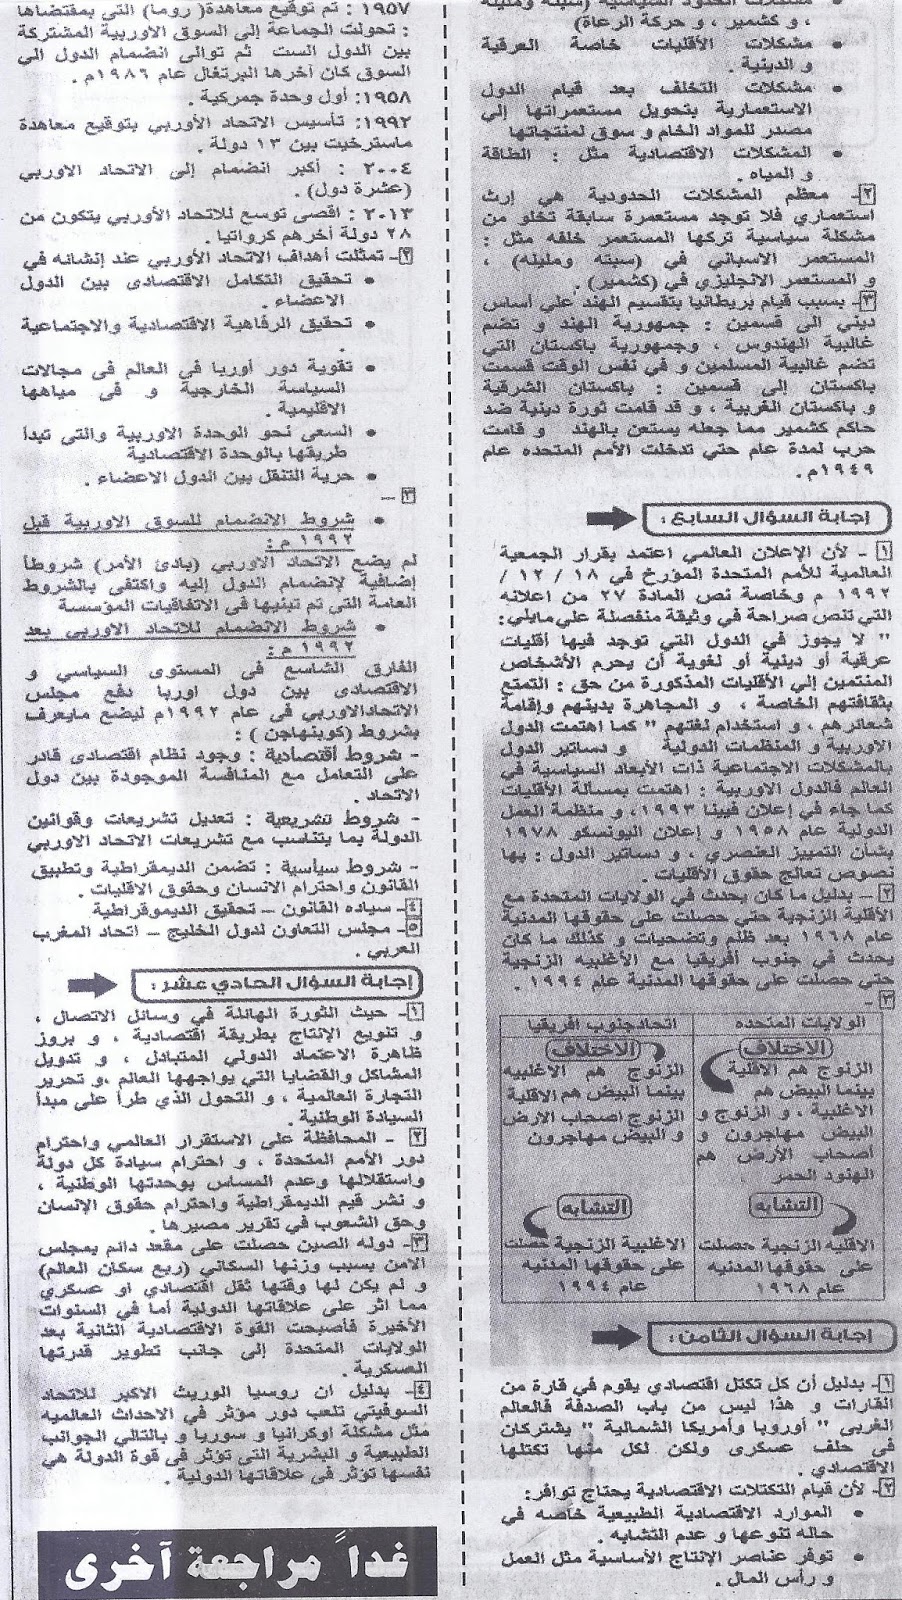 مشكلات الحدود السياسية (سبته ومليله
، و كشمير ، و حركة الرعاة)
• مشكلات الأقليات خاصة العرقية
و الدينية .
• مشكلات التخلف بعد قيام الدول
الاستعمارية بتحويل مستعمراتها إلي
مصدر للمواد الخام و سوق لمنتجاتها
• المشكلات الاقتصادية مثل : الطاقة
و المياه .
٢- معظم المشكلات الحدودية هي إرث
استعماري فلا توجد مستعمرة سابقة تخلو من
مشكلة سياسية تركها المستعمر خلفه مثل :
المستعمر الاسباني في (سبته ومليله) ،
و المستعمر الانجليزي في (كشمير) .
٣- بسبب قيام بريطانيا بتقسيم الهند علي أساس
ديني الى قسمين : جمهورية الهند و تضم
غالبية الهندوس ، وجمهورية باكستان التي
تضم غالبية المسلمين و في نفس الوقت قسمت
باكستان إلى قسمين : باكستان الشرقية
و باكستان الغربية ، و قد قامت ثورة دينية ضد
حاكم كشمير مما جعله يستعن بالهند و قامت
حرب لمدة عام حتي تدخلت الأمم المتحده عام
١٩٤٩م .
إجابة السؤال السابع :
١ - لأن الإعلان العالمي اعتمد بقرار الجمعية
العالمية للأمم المتحدة المؤرخ في ١٨ / ١٢ /
١٩٩٢ م وخاصة نص المادة ٢٧ من اعلانه
التي تنص صراحة في وثيقة منفصلة علي مايلي:
" لا يجوز في الدول التي توجد فيها أقليات
عرقية أو دينية أو لغوية أن يحرم الأشخاص
المنتمين إلي الأقليات المذكورة من حق : التمتع
بثقافتهم الخاصة ، و المجاهرة بدينهم وإقامة
شعائرهم ، و استخدام لغتهم " كما اهتمت الدول
الاوربية و المنظمات الدولية و دساتير الدول
بالمشكلات الاجتماعية ذات الأبعاد السياسية في
العالم فالدول الاوربية : اهتمت بمسألة الأقليات
كما جاء في إعلان فيينا ١٩٩٣، و منظمة العمل
الدولية عام ١٩٥٨ و إعلان اليونسكو ١٩٧٨
بشأن التمييز العنصري ، و دساتير الدول : بها
نصوص تعالج حقوق الأقليات .
٢ - بدليل ما كان يحدث في الولايات المتحدة مع
الأقلية الزنجية حتي حصلت على حقوقها المدنية
عام ١٩٦٨ بعد ظلم وتضحيات و كذلك ما كان
يحدث في جنوب أفريقيا مع الأغلبيه الزنجية
حتي حصلت على حقوقها المدنية عام ١٩٩٤ .
٣ -
الولايات المتحده
الاختلاف
الزنوج هم الاقلية
بينما البيض هم
الاغلبية ، و الزنوج و
البيض مهاجرون و
اصحاب الأرض هم
الهنود الحمر
التشابه
الاقليه الزنجية حصلت
على حقوقها المدنيه
عام ١٩٦٨
اتحادجنوب افريقيا
الاختلاف
الزنوج هم الاغلبيه
بينما البيض هم الاقلية
الزنوج اصحاب الارض
و البيض مهاجرون
التشابه
الاغلبية الزنجية حصلت
على حقوقها المدنيه
عام ١٩٩٤
إجابة السؤال الثامن :
١- بدليل أن كل تكتل اقتصادي يقوم في قارة من
القارات و هذا ليس من باب الصدفة فالعالم
الغربى " أوروبا وأمريكا الشمالية " يشتركان
فى حلف عسكرى ولكن لكل منها تكتلها
الاقتصادي .
٢- لأن قيام التكتلات الاقتصادية يحتاج توافر:
• الموارد الاقتصادية الطبيعية خاصه في
حاله تنوعها و عدم التشابه .
• توفر عناصر الإنتاج الأساسية مثل العمل
و رأس المال .
١٩٥٧ : تم توقيع معاهدة( روما) التى بمقتضاها
: تحولت الجماعة إلى السوق الاوربية المشتركة
بين الدول الست ثم توالى انضمام الدول الي
السوق كان آخرها البرتغال عام ١٩٨٦م .
١٩٥٨: أول وحدة جمركية .
١٩٩٢: تأسيس الاتحاد الأوربي بتوقيع معاهدة
ماسترخيت بين ١٣ دولة .
٢٠٠٤ : أكبر انضمام إلى الاتحاد الاوربي
(عشرة دول) .
٢٠١٣ : اقصى توسع للاتحاد الأوربي يتكون من
٢٨ دولة أخرهم كرواتيا .
٢- تمثلت أهداف الاتحاد الأوربي عند إنشائه في
• تحقيق التكامل الاقتصادى بين الدول
الاعضاء .
• تحقيق الرفاهية الاقتصادية والاجتماعية
.
• تقوية دور أوربا في العالم فى مجالات
السياسة الخارجية و فى مياهها
الاقليمية .
• السعى نحو الوحدة الاوربية والتى تبدأ
طريقها بالوحدة الاقتصادية
• حرية التنقل بين الدول الاعضاء .
٣ -
• شروط الانضمام للسوق الاوربية قبل
١٩٩٢ م :
لم يضع الاتحاد الاوربي (بادئ الأمر) شروطاً
إضافية لإنضمام الدول إليه واكتفى بالشروط
العامة التى تم تبنيها فى الاتفاقيات المؤسسة
• شروط الانضمام للاتحاد الاوربي بعد
١٩٩٢ م :
الفارق الشاسع فى المستوى السياسي و
الاقتصادى بين دول اوربا دفع مجلس
الاتحادالاوربي فى عام ١٩٩٢م ليضع مايعرف
بشروط (كوبنهاجن ) :
- شروط أقتصادية : وجود نظام اقتصادى قادر
على التعامل مع المنافسة الموجودة بين دول
الاتحاد .
- شروط تشريعية : تعديل تشريعات وقوانين
الدولة بما يتناسب مع تشريعات الاتحاد الاوربي
- شروط سياسية : تضمن الديمقراطية وتطبيق
القانون واحترام الانسان وحقوق الاقليات .
٤- سياده القانون – تحقيق الديموقراطية
٥- مجلس التعاون لدول الخليج – اتحاد المغرب
العربي .
إجابة السؤال الحادي عشر :
١- حيث الثورة الهائلة في وسائل الاتصال ،
و تنويع الإنتاج بطريقة اقتصادية ، و بروز
ظاهرة الاعتماد الدولي المتبادل ، و تدويل
المشاكل والقضايا التي يواجهها العالم ،و تحرير
التجارة العالمية ، و التحول الذي طرأ على مبدأ
السيادة الوطنية .
٢ - المحافظة على الاستقرار العالمي واحترام
دور الأمم المتحدة ، و احترام سيادة كل دولة
واستقلالها وعدم المساس بوحدتها الوطنية ،
و نشر قيم الديمقراطية واحترام حقوق الإنسان
وحق الشعوب في تقرير مصيرها .
٣- دوله الصين حصلت على مقعد دائم بمجلس
الامن بسبب وزنها السكاني (ربع سكان العالم)
و لم يكن لها وقتها ثقل اقتصادي او عسكري
مما اثر على علاقاتها الدولية أما في السنوات
الأخيرة فأصبحت القوة الاقتصادية الثانية بعد
الولايات المتحدة إلى جانب تطوير قدرتها
العسكرية .
٤- بدليل ان روسيا الوريث الاكبر للاتحاد
السوفيتي تلعب دور مؤثر في الاحداث العالميه
مثل مشكلة اوكرانيا و سوريا و بالتالي الجوانب
الطبيعية و البشرية التى تؤثر فى قوة الدولة هي
نفسها تؤثر فى علاقاتها الدولية .
غداً مراجعة آخرى